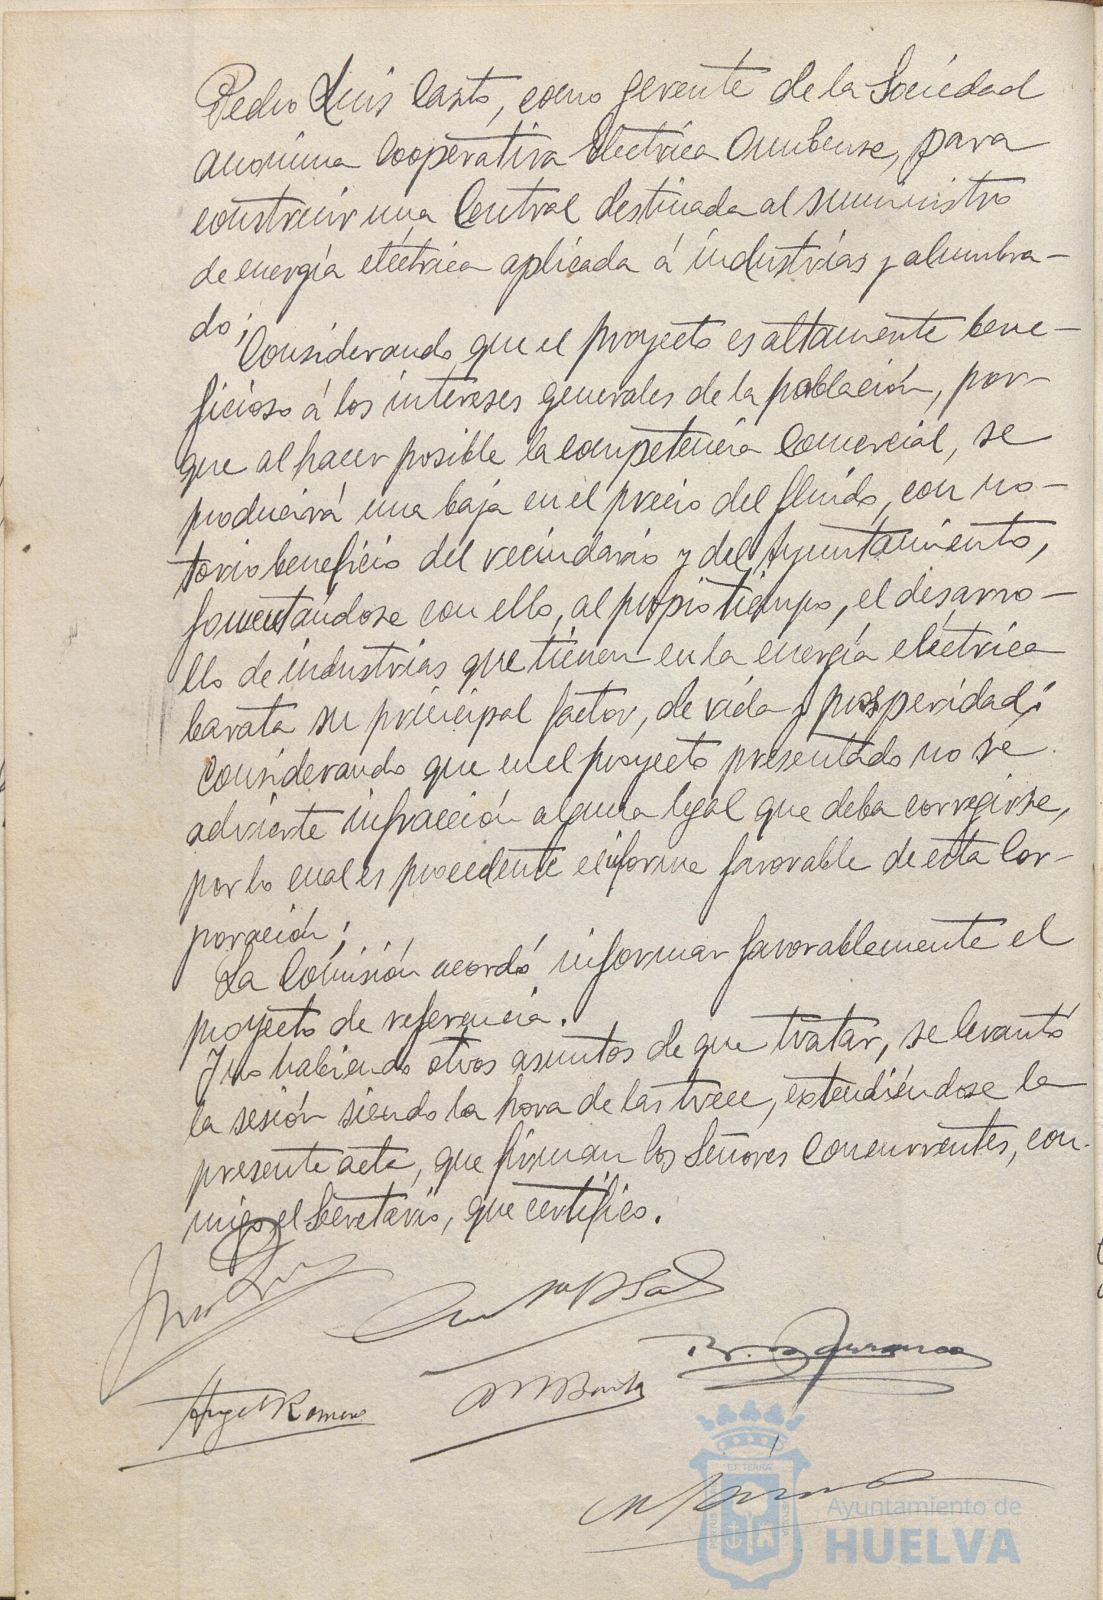 Pedro Luis Casto, como gerente de la Sociedad
anónima Cooperativa Electrica Onubense, para
construir una Central destinada al suministro
de energía eléctrica aplicada á industrias y alumbra-
do;
Considerando que el proyecto es altamente bene-
ficioso á los intereses generales de la población, por-
que al hacer posible la competencia Comercial, se
producirá una baja en el precio del fluido, con no-
torio beneficio del vecindario y del Ayuntamiento,
fomentándose con ello, al propio tiempo, el desarro-
llo de industrias que tienen en la energía eléctrica
barata su principal factor, de vida y prosperidad;
Considerando que en el proyecto presentado no se
advierte infracción alguna legal que deba corregirse,
por lo cual es procedente el informe favorable de esta Cor-
poración;
La Comisión acordó informar favorablemente el
proyecto de referencia.
Y no habiendo otros asuntos de que tratar, se levantó
la sesión siendo la hora de las trece, extendiéndose la
presente acta, que firman los Señores Concurrentes, con-
migo el Secretario, que certifico.
Angel Romero
ET TERRA
Ayuntamiento de
HUELVA